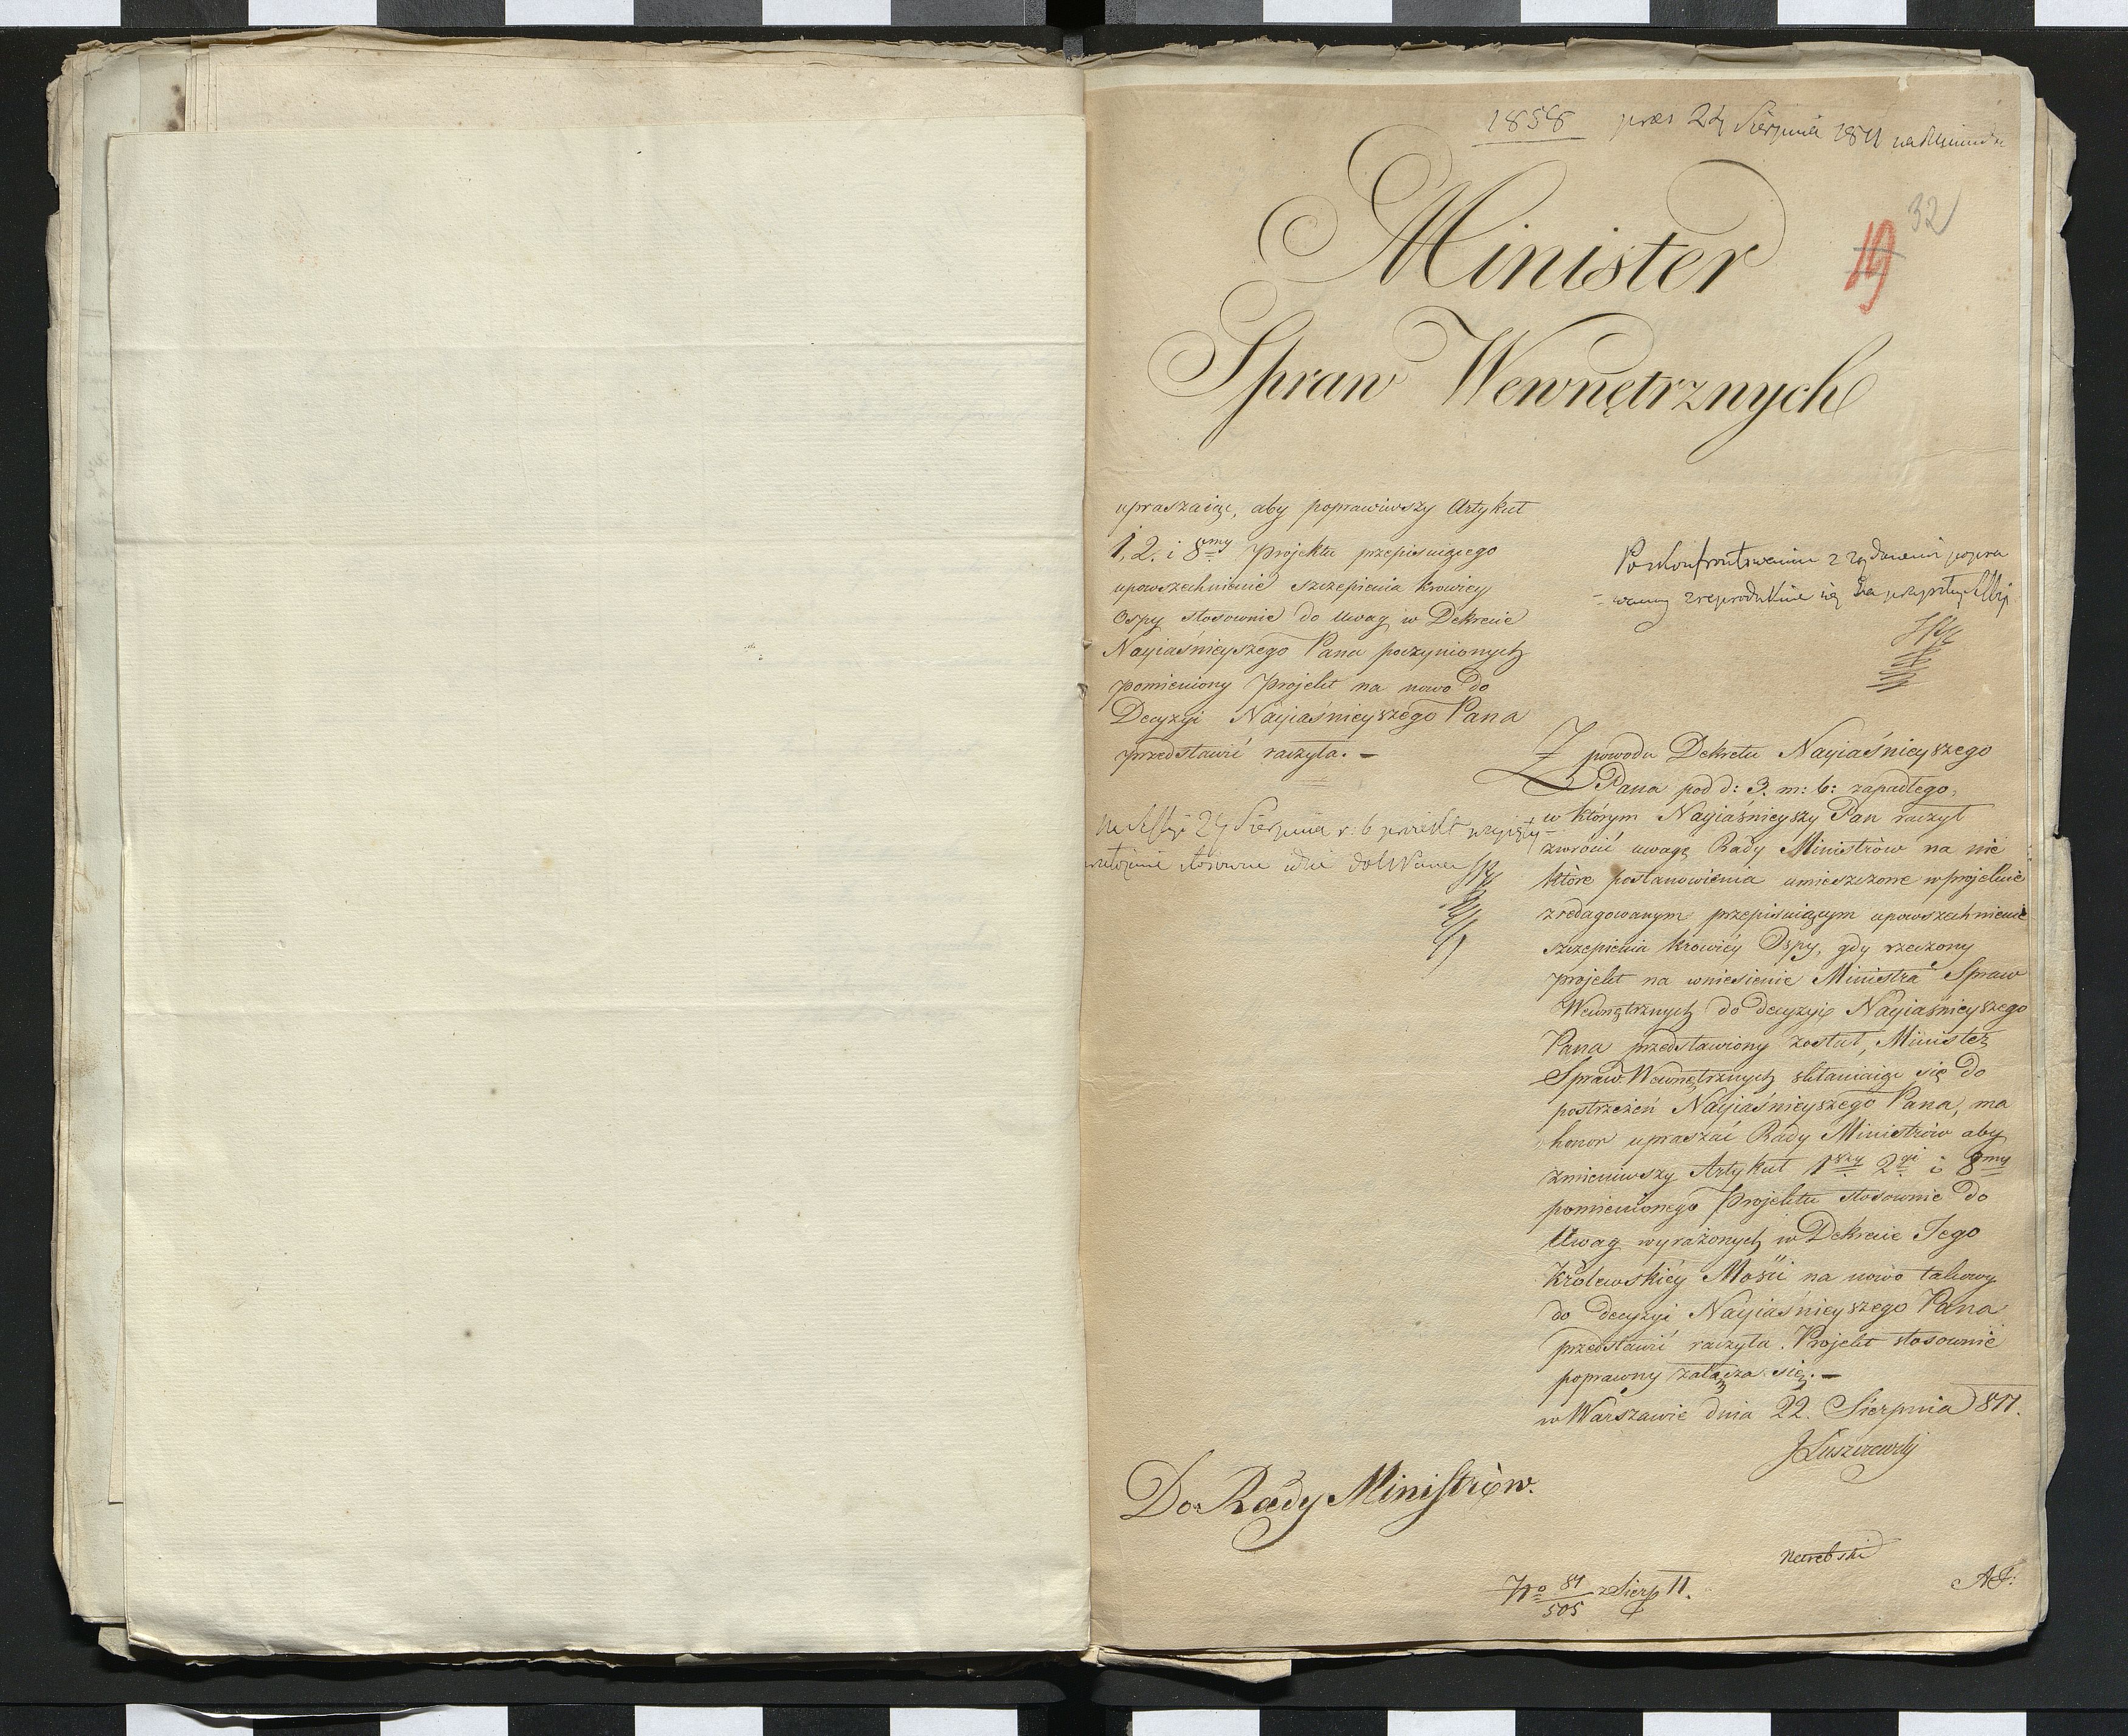 1858 præs 24 Sierpnia 1811
32
19
Minister
Spraw Wewnętrznych
upraszaiąc, aby poprawiwszy Artykuł
1, 2. i 8my Projektu przepisuiącego
upowszechnienie szczepienia krowiey
Ospy stosownie do Uwag w Dekrecie
Nayiaśnieyszego Pana poczynionych
pomieniony Projekt na nowo do
Decyzyi Nayiaśnieyszego Pana
przedstawić raczyła. –
Po skonfrontowaniu z
24 Sierpnia r: b
Z powodu Dekretu Nayiaśnieyszego
Pana pod d: 3. m: b: zapadłego,
w którym Nayiaśnieyszy Pan raczył
zwrócić uwagę Rady Ministrów na nie
które postanowienia umieszczone w projekcie
zredagowanym przepisuiącym upowszechnienie
szczepienia krowiéy Ospy, gdy rzeczony
projekt na wniesienie Ministra Spraw
Wewnętrznych do decyzyi Nayiaśnieyszego
Pana przedstawiony został, Minister
Spraw Wewnętrznych skłaniaiąc się do
postrzeżeń Nayiaśnieyszego Pana, ma
honor upraszać Rady Ministrów aby
zmieniwszy Artykuł 1szy 2gi i 8my
pomienionego Projektu stosownie do
Uwag wyrażonych w Dekrecie Jego
Królewskiéy Mości na nowo takowy
do decyzyi Nayiaśnieyszego Pana
przedstawić raczyła. Projekt stosownie
poprawny załącza się. –
w Warszawie dnia 22. Sierpnia 811.
JŁuszczewski
Do Rady Ministrów.
No 81/505 z Sierp 11.